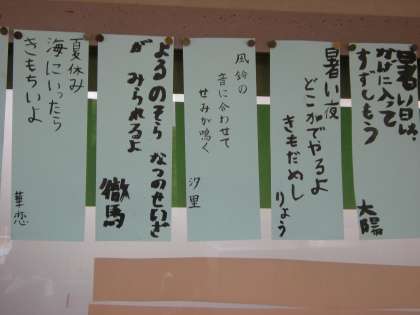 暑い日は、
かげに入って
すずしもう
太陽
暑い夜
どこかでやるよ
きもだめし
りょう
風鈴の
音に合わせて
せみが鳴く
汐里
よるのそら なつのせいざ
が みられるよ
徹馬
夏休み
海にいったら
きもちいよ
華恋